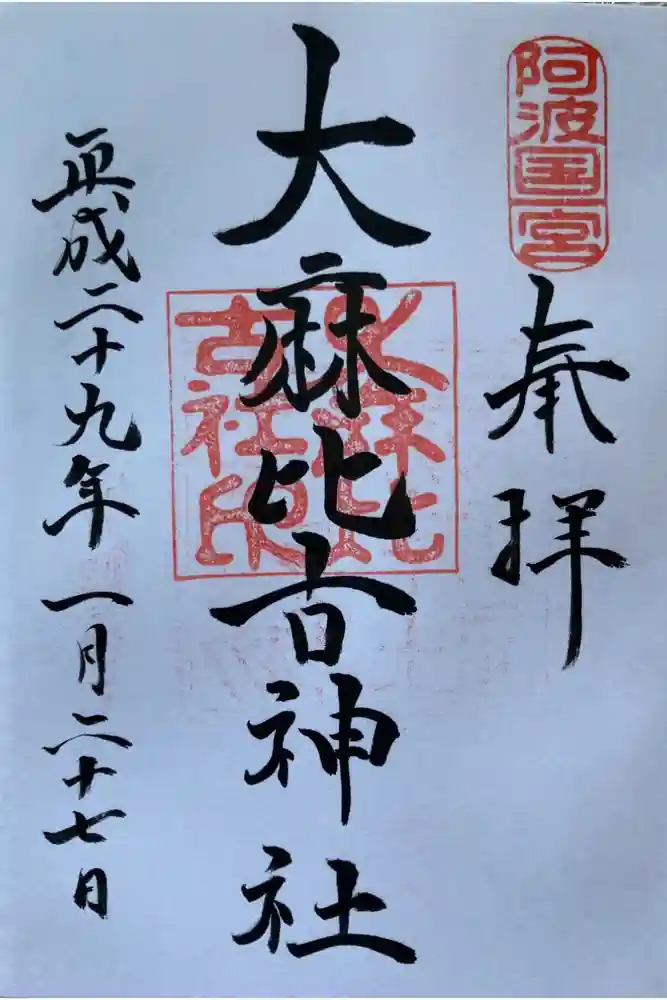 阿波国一宮
奉拝
大麻比古神社
大麻比
古社印
平成二十九年一月二十七日